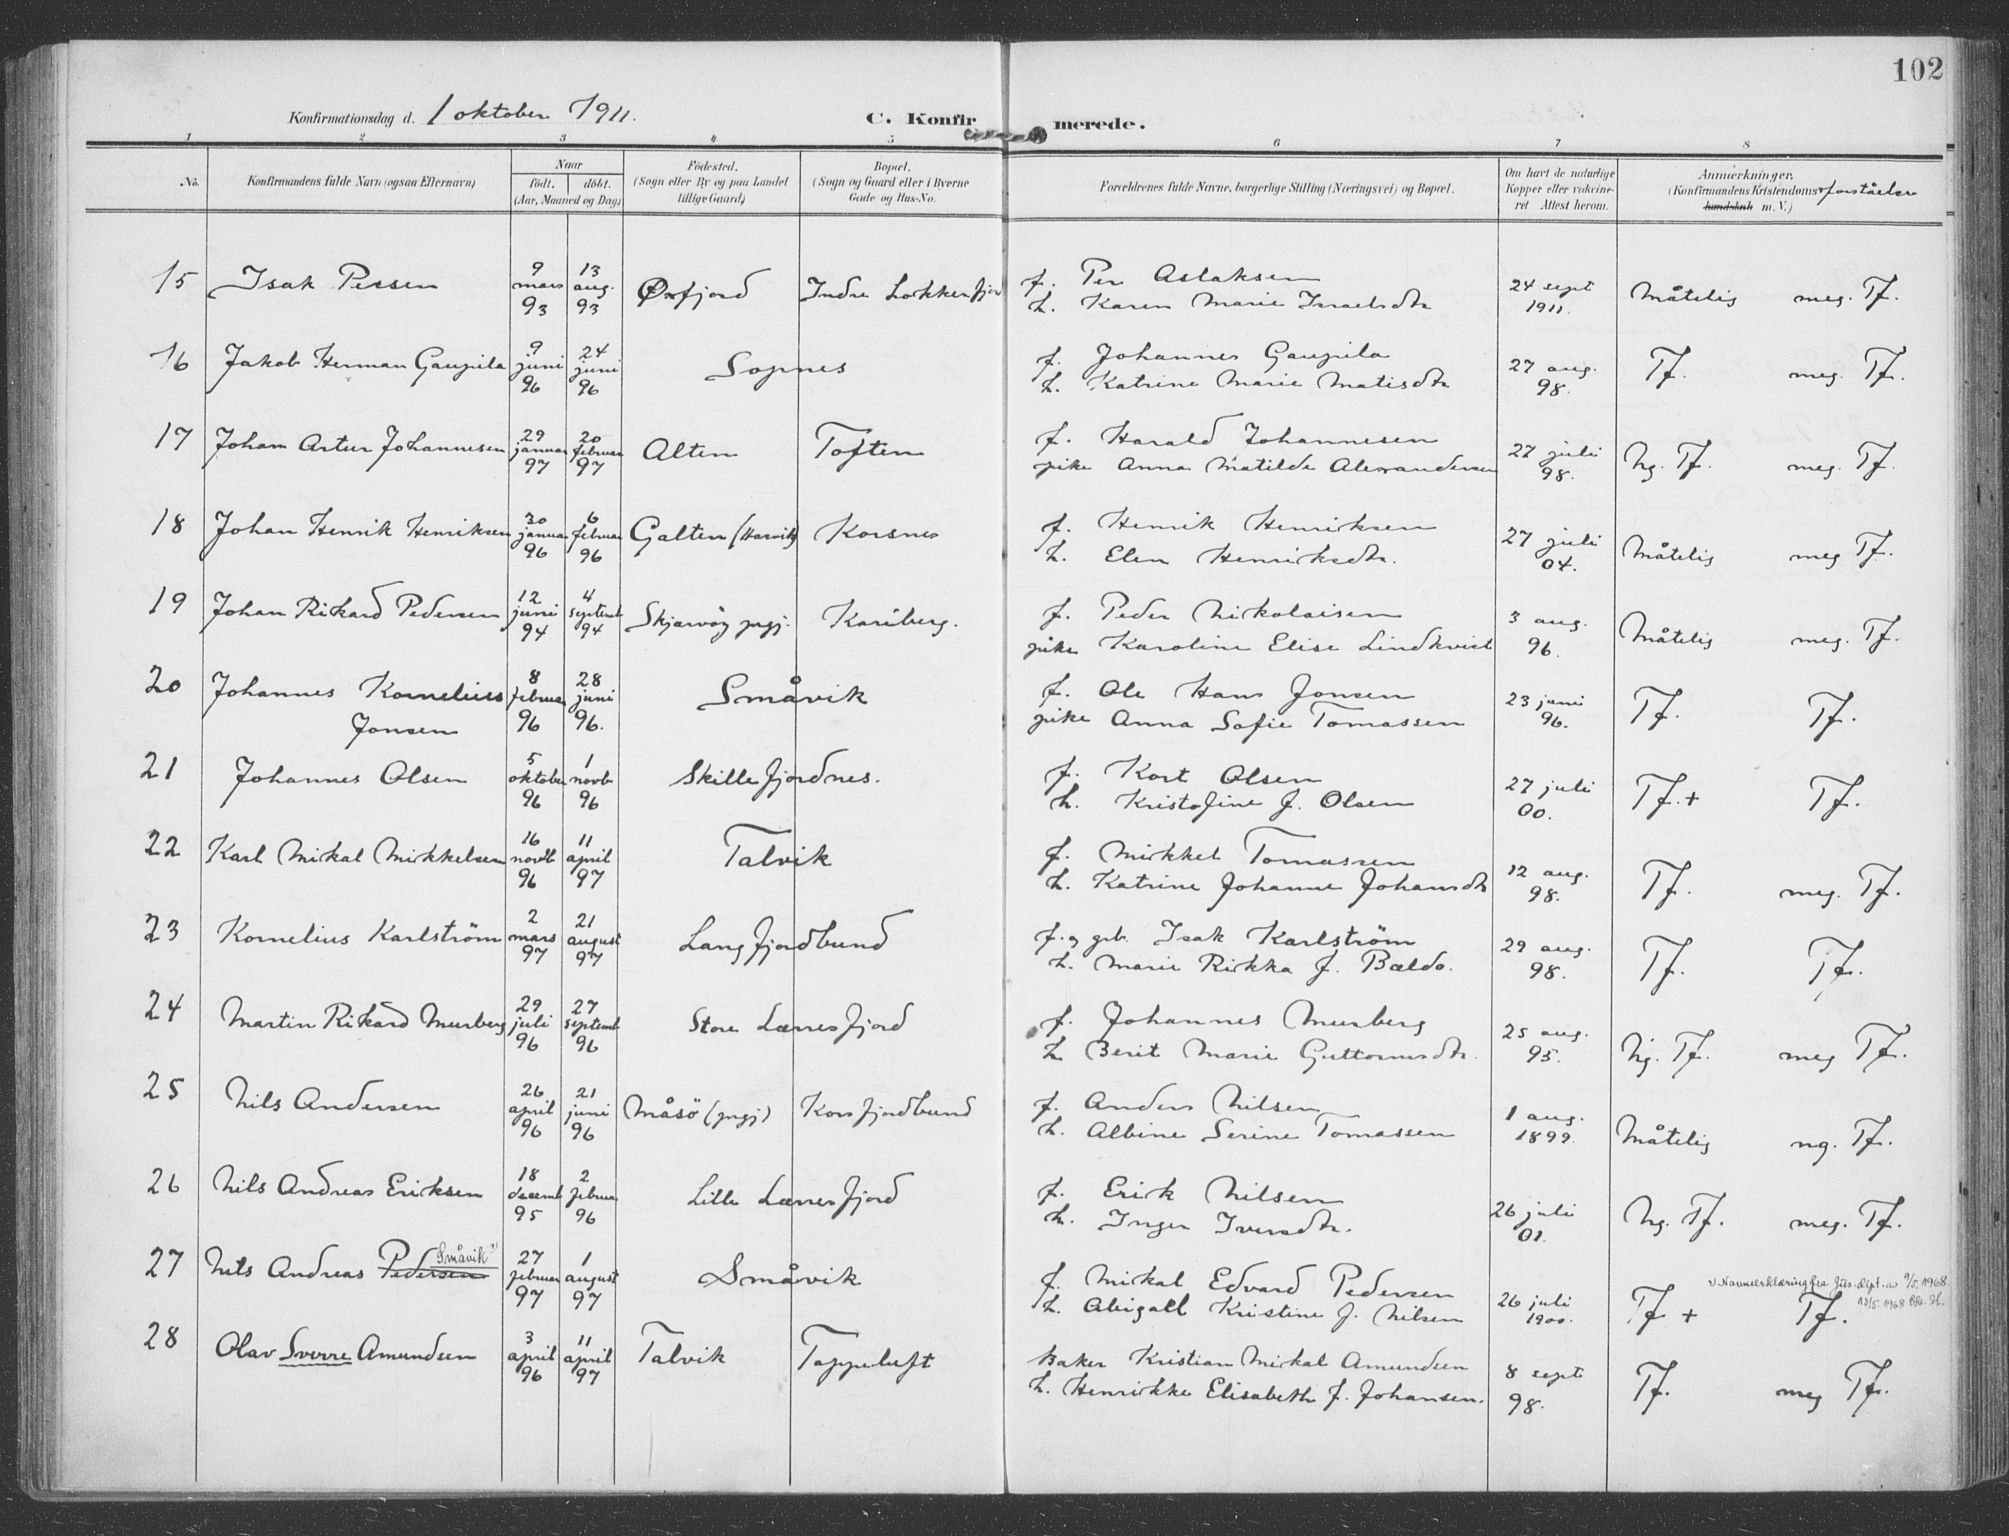 102
Konfirmationsdag d. 1 oktober 1911.
C. Konfirmerede.
1 2 3 4 5 6 7 8
No.
Konfirmandens fulde Navn (ogsaa Efternavn)
Naar
født. døbt.
(Aar, Maaned og Dag)
Fødested.
(Sogn eller By og paa Landet
tillige Gaard)
Bopæl.
(Sogn og Gaard eller i Byerne
Gade og Hus-No.
Forældrenes fulde Navne, borgerlige Stilling (Næringsvei) og Bopæl.
Om havt de naturlige
Kopper eller vakcine-
ret Attest herom.
Anmærkninger.
(Konfirmandens Kristendoms forståelse
kundskab m. V.)
15 Isak Persen 9 mars 93 13 aug. 93 Øxfjord Indre Lokkerfjor f. Per Aslaksen 24 sept 1911. Måtelig meg. Tf.
h. Karen Marie Israelsdtr
16 Jakob Herman Gaupila 9 juni 96 24 juni 96 Sopnes f. Johannes Gaupila 27 aug. 98. Tf. meg. Tf.
h. Katrine Marie Matisdtr
17 Johan Artur Johannesen 29 januar 97 20 februar 97 Alten Toften f. Harald Johannesen 27 juli 98. Ng. Tf. meg. Tf.
pike Anna Matilde Alexandersen
18 Johan Henrik Henriksen 30 januar 96 6 februar 96 Galten (Hasvik) Korsnes f. Henrik Henriksen 27 juli 04. Måtelig meg Tf.
h. Elen Henriksdtr.
19 Johan Rikard Pedersen 12 juni 94 4 septemb 94 Skjærvöy prgj. Karlberg. f. Peder Nikolaisen 3 aug. 96. Måtelig meg. Tf.
pike Karoline Elise Lindkvist
20 Johannes Kornelius 8 februar 96 28 juni 96. Småvik f. Ole Hans Jonsen 23 juni 96. Tf. Tf.
Jonsen pike Anna Sofie Tomassen
21 Johannes Olsen 5 oktober 96 1 novb 96 Skillefjordnes. f. Kort Olsen 27 juli 00. Tf. + Tf.
h. Kristofine f. Olsen
22 Karl Mikal Mikkelsen 16 novb 96 11 april 97 Talvik f. Mikkel Tomassen 12 aug. 98. Tf. meg. Tf.
h. Katrine Johanne Johansdtr
23 Kornelius Karlström 2 mars 97 21 august 97 Langfjordbund f. og grb. Isak Karlström 29 aug. 98. Tf. Tf.
h. Marie Rikka f. Bældo.
24 Martin Rikard Murberg 29 juli 96 27 septemb 96 Store Lerresfjord f. Johannes Murberg 25 aug. 95. Ng. Tf. meg Tf.
h. Berit Marie Guttormsdtr.
25 Nils Andersen 26 april 96 21 juni 96 Måsö (prgj) Korsfjordbund f. Anders Nilsen 1 aug. 1899. Måtelig ng. Tf.
h. Albine Serine Tomassen
26 Nils Andreas Eriksen 18 desemb 95 2 februar 96 Lille Lerresfjord f. Erik Nilsen 26 juli 01. Ng. Tf. meg. Tf.
h. Inger Iversdtr.
27 Nils Andreas Pedersen Småvik 1) 27 februar 97 1 august 97 Småvik f. Mikal Edvard Pedersen 26 juli 1900. Tf + Tf.
h. Abigall Kristine f. Nilsen
1) Navneerklæring fra Jus. dept. av 9/5. 1968.
28 Olav Sverre Amundsen 3 april 96 11 april 97 Talvik Tappeluft Baker Kristian Mikal Amundsen 8 sept 98. Tf. meg Tf.
h. Henrikke Elisabeth f. Johansen.